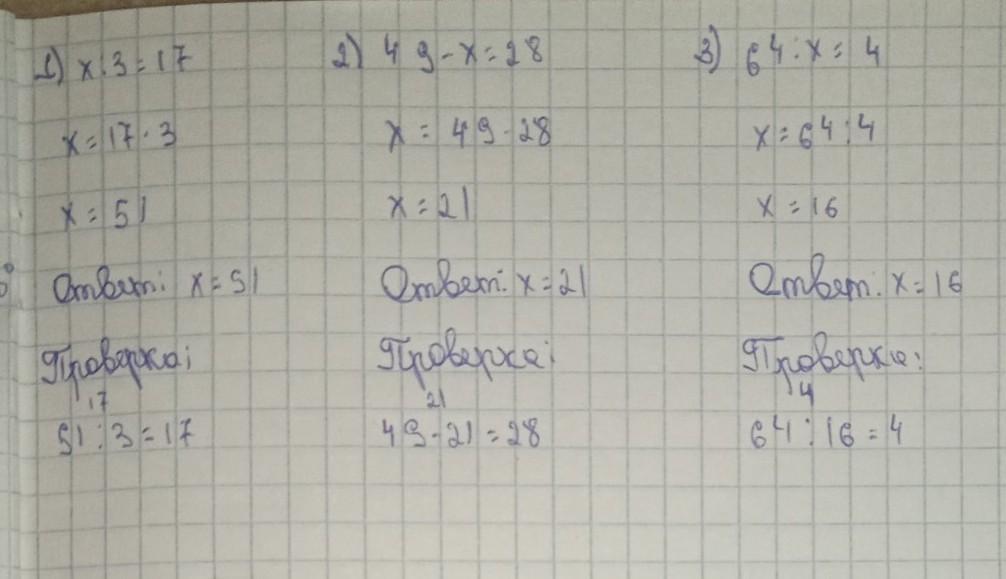 1) x:3=17 2) 49-x=28 3) 64:x=4
x=17·3 x=49-28 x=64:4
x=51 x=21 x=16
Ответ: x=51 Ответ: x=21 Ответ: x=16
Проверка: Проверка: Проверка:
17 21 4
51:3=17 49-21=28 64:16=4